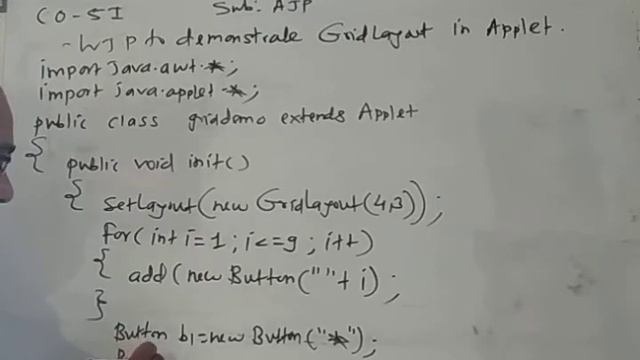 CO-5I Sub: AJP
- WJP to demonstrate GridLayout in Applet.
import Java.awt.*;
import java.applet.*;
public class griddemo extends Applet
{ public void init()
{ setLayout(new GridLayout(4,3));
for(int i=1; i<=9; i++)
{ add(new Button(" "+ i);
}
Button b1=new Button("*");